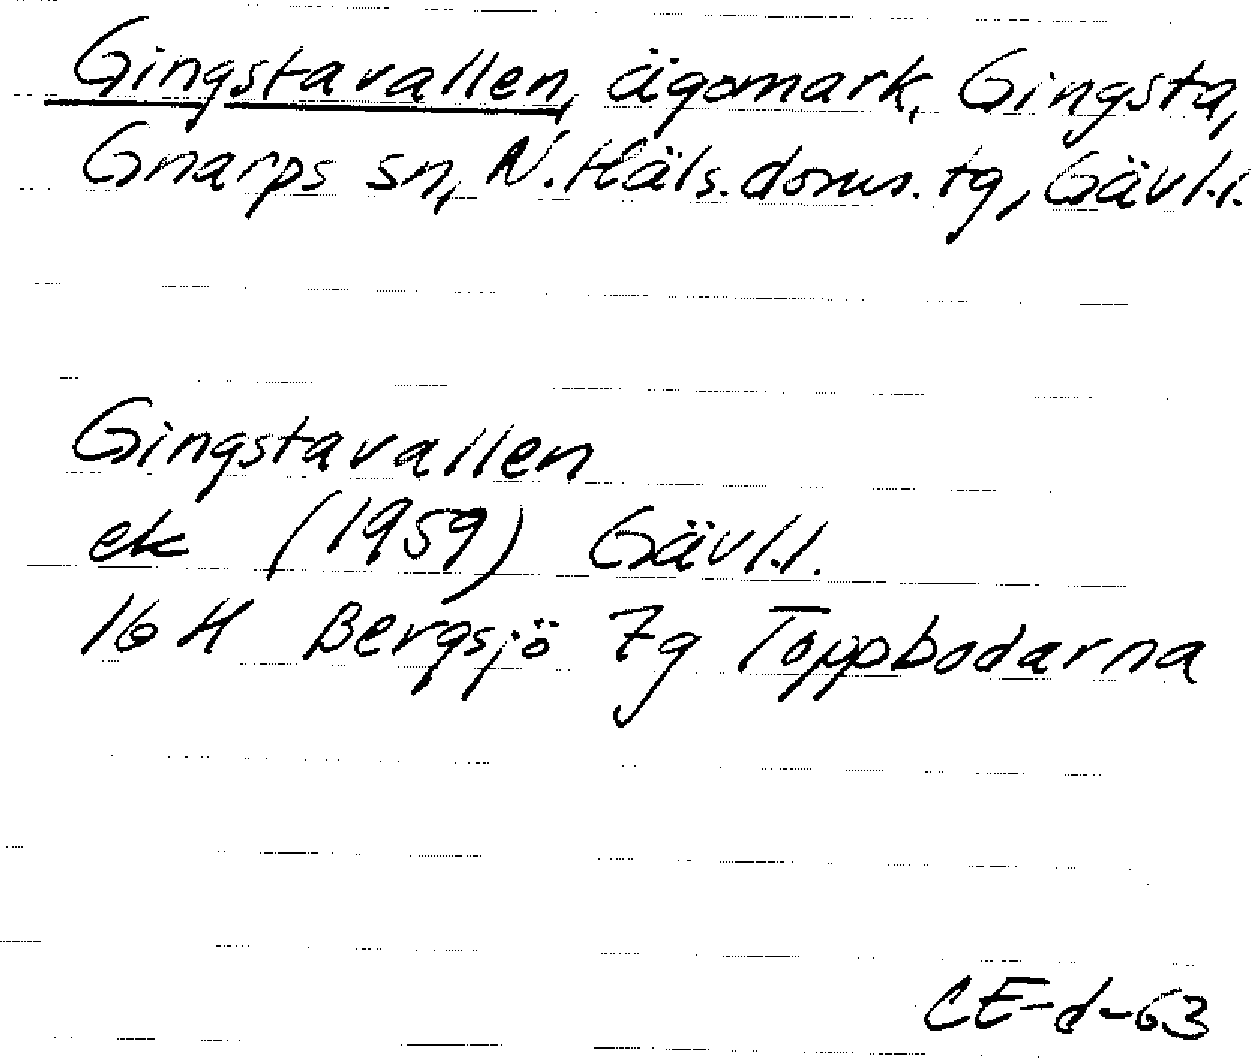 Gingstavallen, ägomark, Gingsta,
Gnarps sn, N. Häls. doms. tg, Gävl.l.
Gingstavallen
ek (1959) Gävl.l.
16 H Bergsjö 7g Toppbodarna
CE-d-63